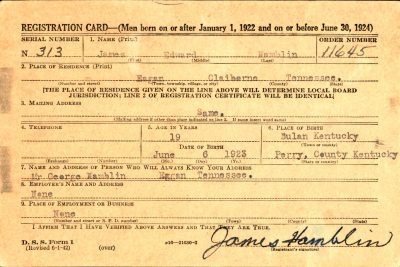 REGISTRATION CARD—(Men born on or after January 1, 1922 and on or before June 30, 1924)
SERIAL NUMBER 1. NAME (Print) ORDER NUMBER
N 313 James Edward Hamblin 11645
(First) (Middle) (Last)
2. PLACE OF RESIDENCE (Print)
Eagan Claiborne Tennessee.
(Number and street) (Town, township, village, or city) (County) (State)
[THE PLACE OF RESIDENCE GIVEN ON THE LINE ABOVE WILL DETERMINE LOCAL BOARD
JURISDICTION; LINE 2 OF REGISTRATION CERTIFICATE WILL BE IDENTICAL]
3. MAILING ADDRESS
Same.
[Mailing address if other than place indicated on line 2. If same insert word same]
4. TELEPHONE 5. AGE IN YEARS 6. PLACE OF BIRTH
19 Bulan Kentucky
DATE OF BIRTH (Town or county)
June 6 1923 Perry, County Kentucky
(Exchange) (Number) (Mo.) (Day) (Yr.) (State or country)
7. NAME AND ADDRESS OF PERSON WHO WILL ALWAYS KNOW YOUR ADDRESS
Mr. George Hamblin Eagan Tennessee.
8. EMPLOYER'S NAME AND ADDRESS
None
9. PLACE OF EMPLOYMENT OR BUSINESS
None
(Number and street or R. F. D. number) (Town) (County) (State)
I AFFIRM THAT I HAVE VERIFIED ABOVE ANSWERS AND THAT THEY ARE TRUE.
D. S. S. Form 1
(Revised 6-1-42) (over) 16—21630-2
James Hamblin
(Registrant's signature)